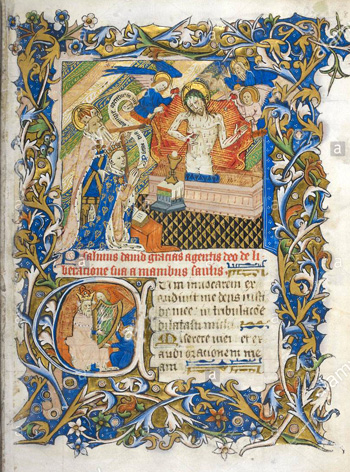 Psalmus david gracias agentis deo de li
beracione sua a manibus saulis
Cum inuocarem ex
audiuit me deus iusti
cie mee in tribulacōe
dilatasti michi
Miserere mei et ex
audi orationem me
am